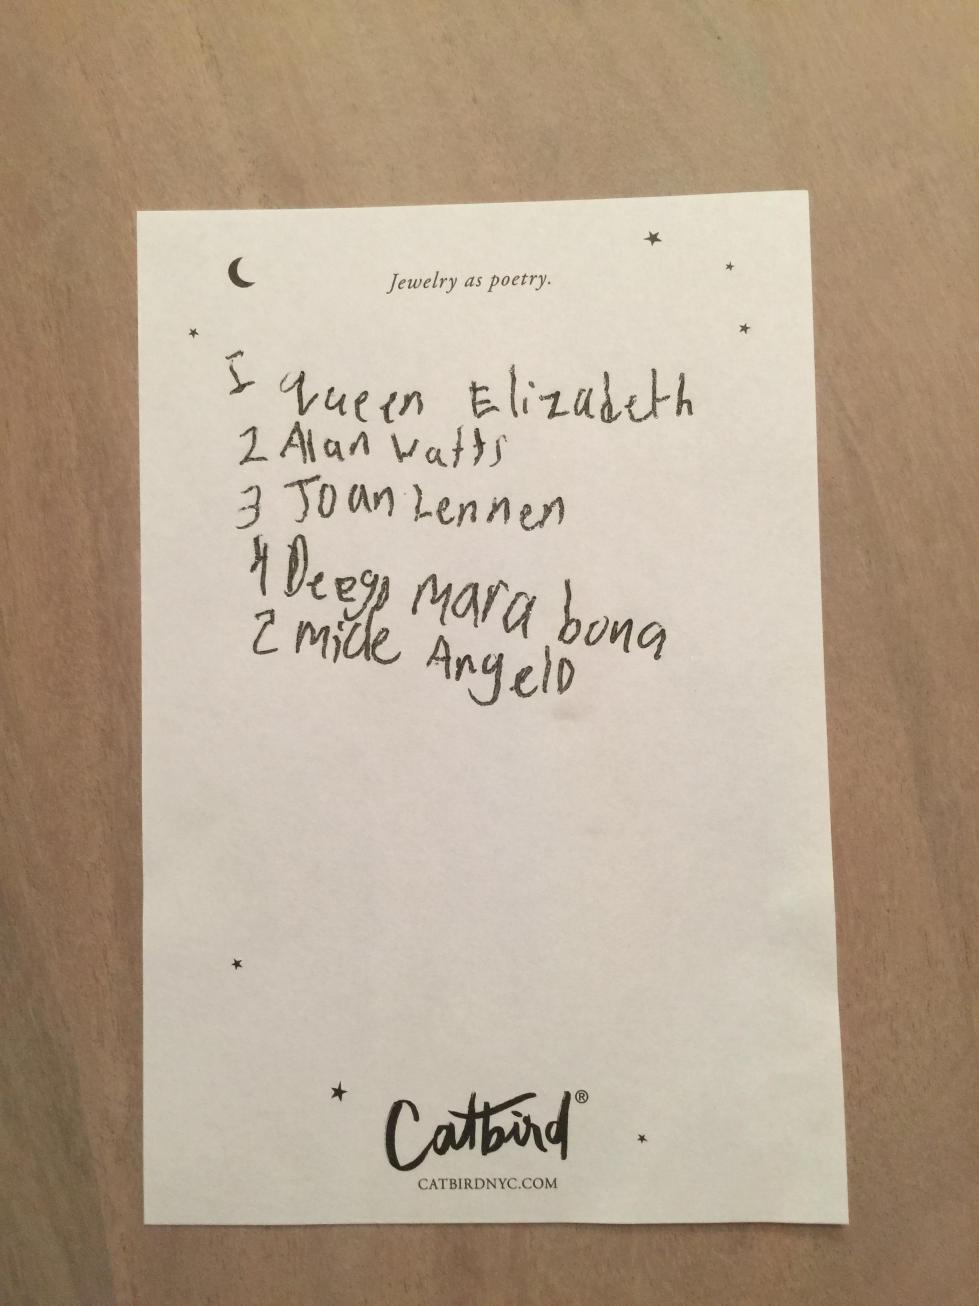 Jewelry as poetry.
1 Queen Elizabeth
2 Alan Watts
3 Joan Lennen
4 Deego Mara bona
2 Micle Angelo
Catbird®
CATBIRDNYC.COM